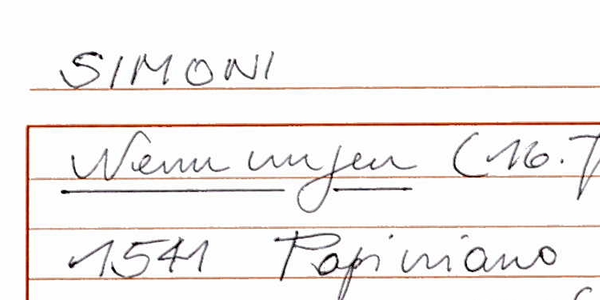 SIMONI
Nennungen (16.
1541 Papiniano